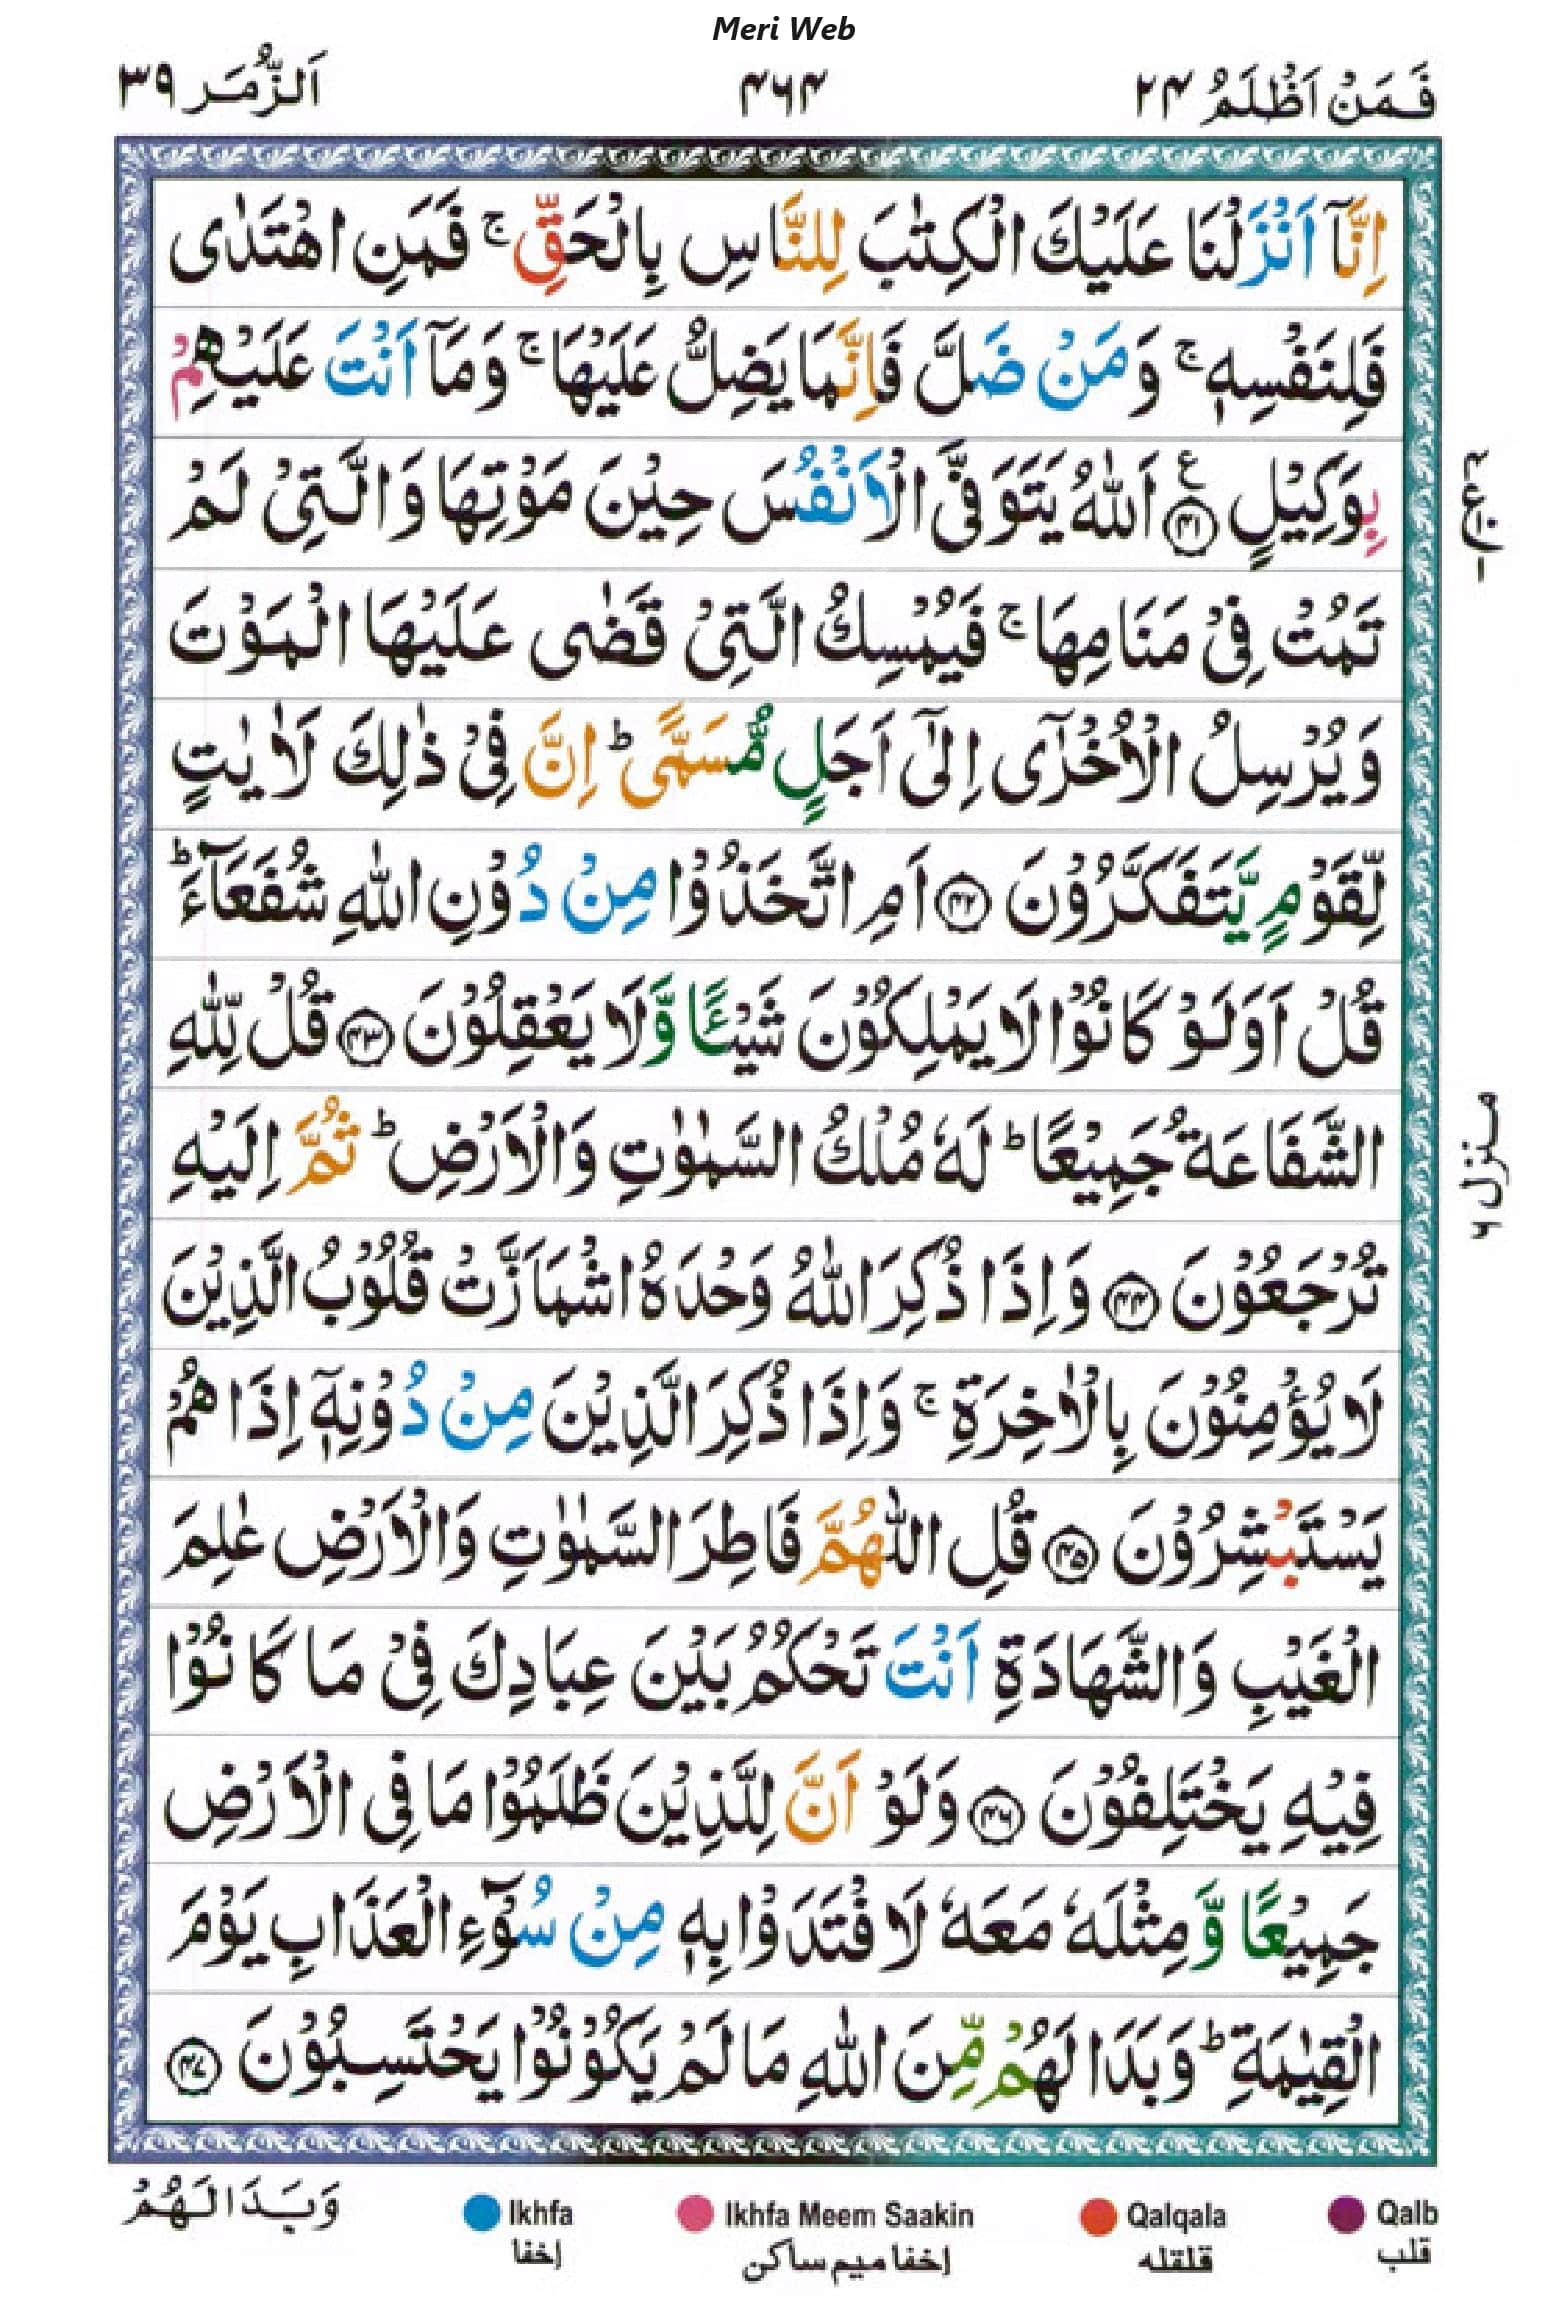 Meri Web
فَمَنْ اَظْلَمُ ۲۴ ۴۶۴ اَلزُّمَر ۳۹
اِنَّاۤ اَنْزَلْنَا عَلَيْكَ الْكِتٰبَ لِلنَّاسِ بِالْحَقِّ ۚ فَمَنِ اهْتَدٰى
فَلِنَفْسِهٖ ۚ وَمَنْ ضَلَّ فَاِنَّمَا يَضِلُّ عَلَيْهَا ۚ وَمَاۤ اَنْتَ عَلَيْهِمْ
بِوَكِيْلٍ ﴿۴۱﴾ اَللّٰهُ يَتَوَفَّى الْاَنْفُسَ حِيْنَ مَوْتِهَا وَالَّتِىْ لَمْ
تَمُتْ فِىْ مَنَامِهَا ۚ فَيُمْسِكُ الَّتِىْ قَضٰى عَلَيْهَا الْمَوْتَ
وَيُرْسِلُ الْاُخْرٰٓى اِلٰٓى اَجَلٍ مُّسَمًّى ؕ اِنَّ فِىْ ذٰلِكَ لَاٰيٰتٍ
لِّقَوْمٍ يَّتَفَكَّرُوْنَ ﴿۴۲﴾ اَمِ اتَّخَذُوْا مِنْ دُوْنِ اللّٰهِ شُفَعَآءَ ؕ
قُلْ اَوَلَوْ كَانُوْا لَا يَمْلِكُوْنَ شَيْـًٔا وَّلَا يَعْقِلُوْنَ ﴿۴۳﴾ قُلْ لِّلّٰهِ
الشَّفَاعَةُ جَمِيْعًا ؕ لَهٗ مُلْكُ السَّمٰوٰتِ وَالْاَرْضِ ؕ ثُمَّ اِلَيْهِ
تُرْجَعُوْنَ ﴿۴۴﴾ وَاِذَا ذُكِرَ اللّٰهُ وَحْدَهُ اشْمَاَزَّتْ قُلُوْبُ الَّذِيْنَ
لَا يُؤْمِنُوْنَ بِالْاٰخِرَةِ ۚ وَاِذَا ذُكِرَ الَّذِيْنَ مِنْ دُوْنِهٖۤ اِذَا هُمْ
يَسْتَبْشِرُوْنَ ﴿۴۵﴾ قُلِ اللّٰهُمَّ فَاطِرَ السَّمٰوٰتِ وَالْاَرْضِ عٰلِمَ
الْغَيْبِ وَالشَّهَادَةِ اَنْتَ تَحْكُمُ بَيْنَ عِبَادِكَ فِىْ مَا كَانُوْا
فِيْهِ يَخْتَلِفُوْنَ ﴿۴۶﴾ وَلَوْ اَنَّ لِلَّذِيْنَ ظَلَمُوْا مَا فِى الْاَرْضِ
جَمِيْعًا وَّمِثْلَهٗ مَعَهٗ لَافْتَدَوْا بِهٖ مِنْ سُوْٓءِ الْعَذَابِ يَوْمَ
الْقِيٰمَةِ ؕ وَبَدَا لَهُمْ مِّنَ اللّٰهِ مَا لَمْ يَكُوْنُوْا يَحْتَسِبُوْنَ ﴿۴۷﴾
منزل ۶
وَبَدَا لَهُمْ
Ikhfa Ikhfa Meem Saakin Qalqala Qalb
إخفا إخفا ميم ساكن قلقله قلب